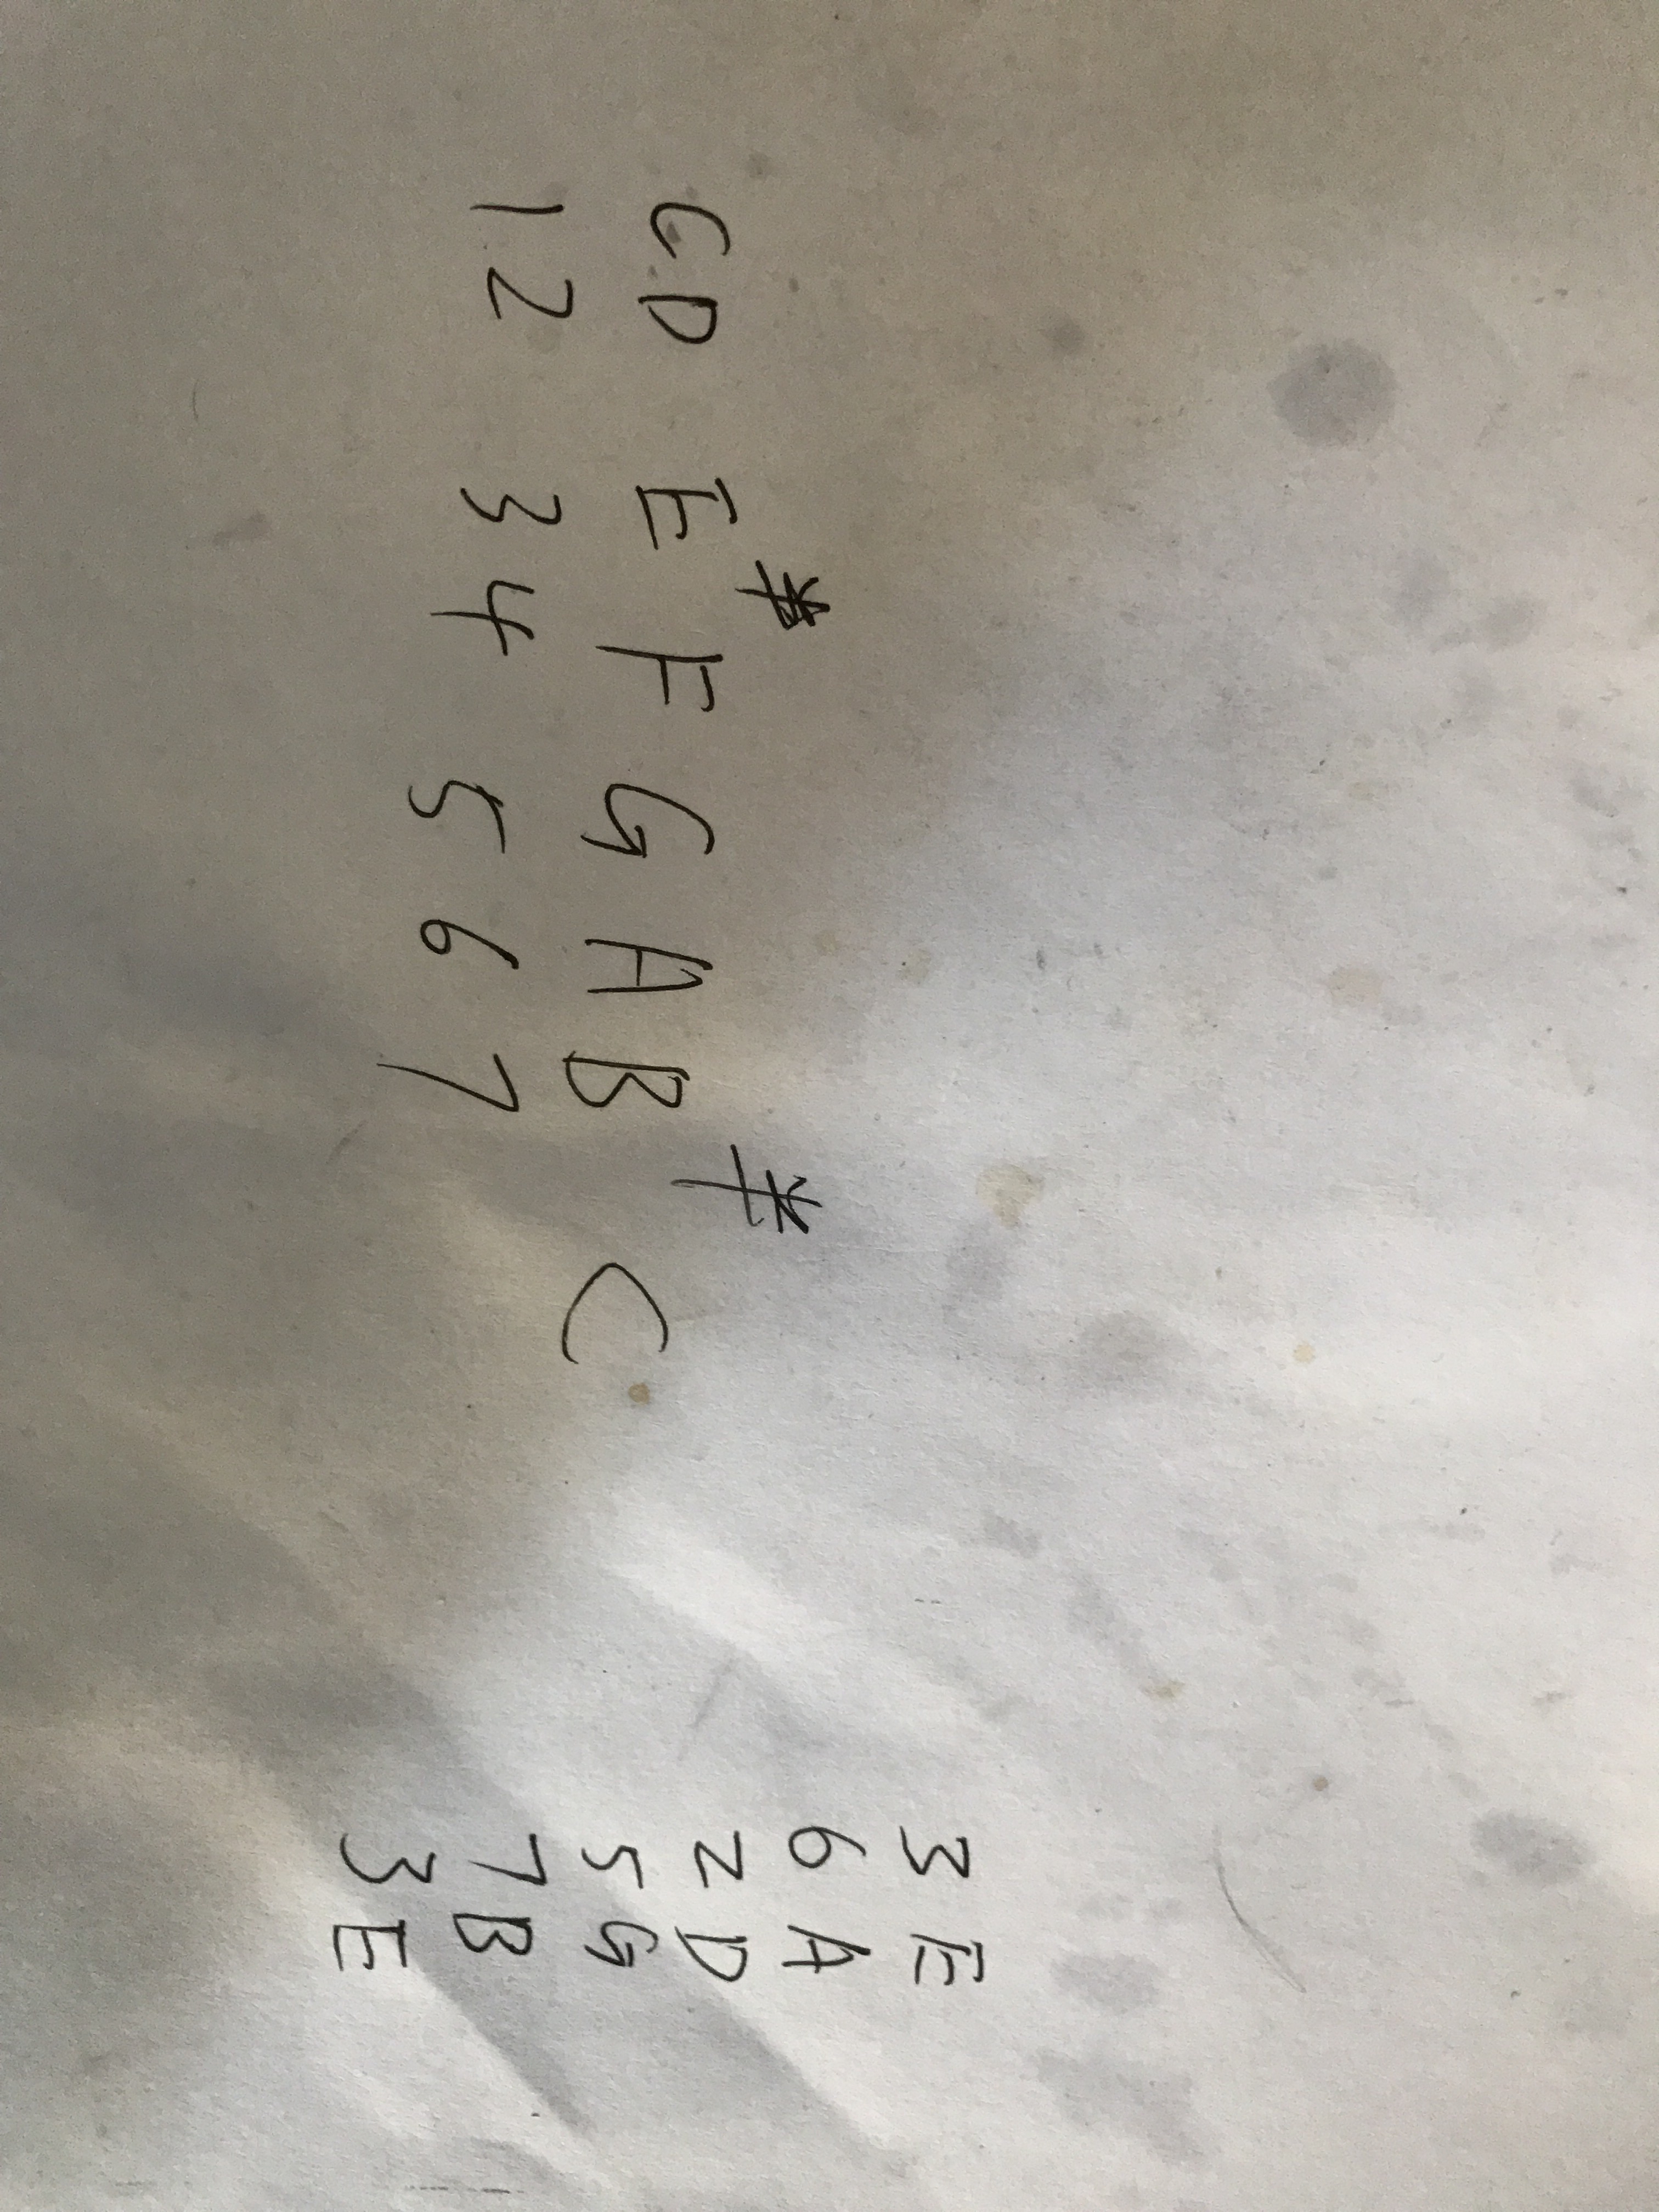 半 半
C D E F G A B C
1 2 3 4 5 6 7
3 E
6 A
2 D
5 G
7 B
3 E